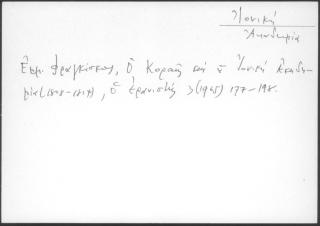 Ἰονική
Ἀκαδημία
Ἐμμ. Φραγκίσκος, Ὁ Κοραῆς καὶ ἡ Ἰονική Ἀκαδη-
μία (1808-1814), Ὁ Ἐρανιστής 3 (1965) 177-198.